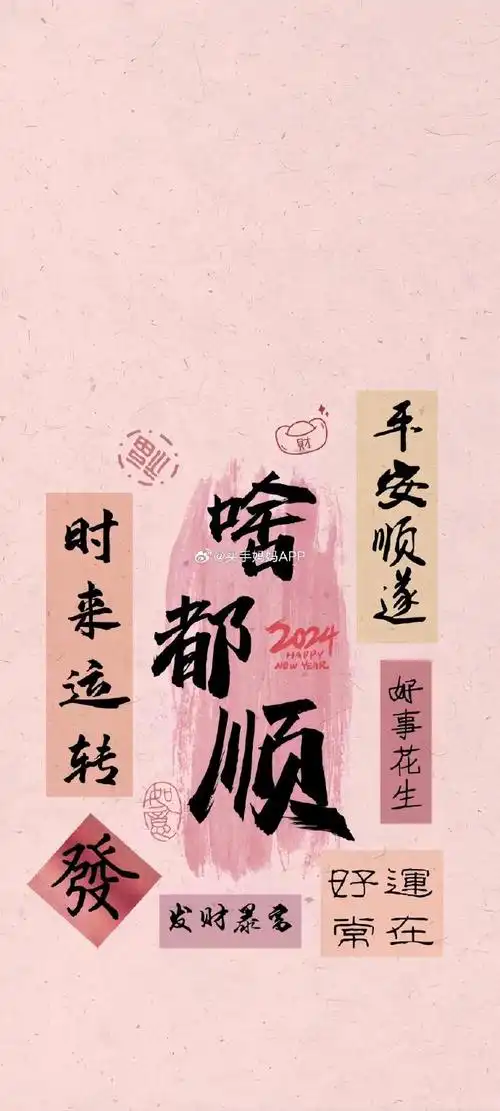 平安顺遂
財
福
啥都顺
@买手妈妈APP
时来运转
2024
HAPPY
NEW YEAR
好事花生
如意
發
发财暴富
好運
常在